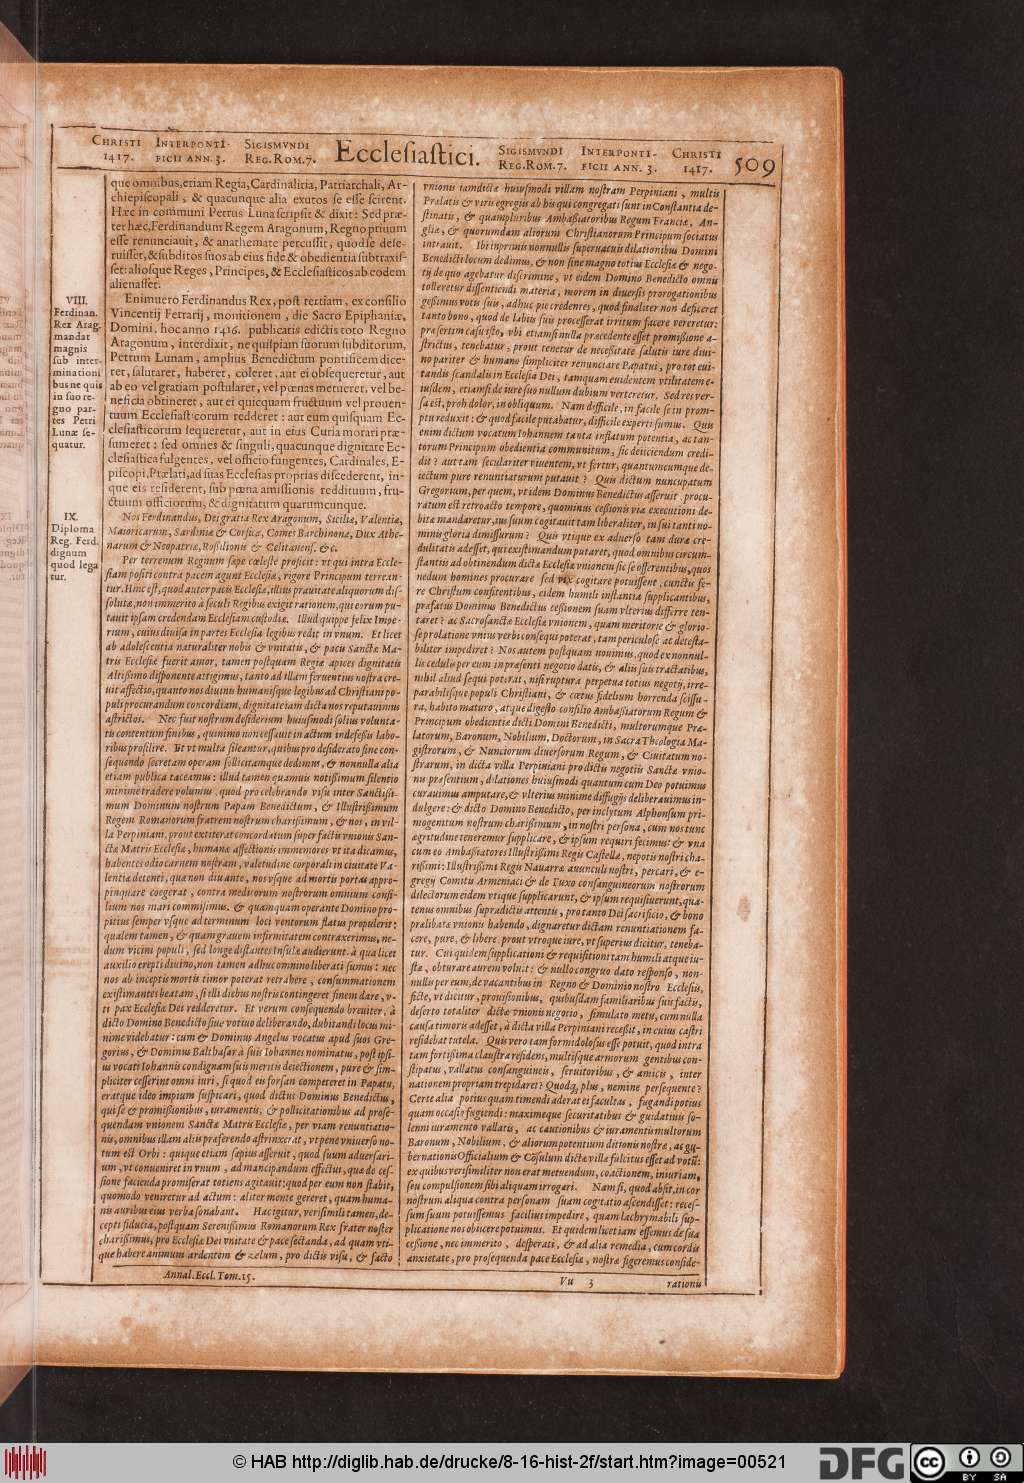 CHRISTI 1417. INTERPONTIFICII ANN. 3. SIGISMVNDI REG. ROM. 7. Ecclesiastici. SIGISMVNDI REG. ROM. 7. INTERPONTIFICII ANN. 3. CHRISTI 1417. 509
que omnibus, etiam Regia, Cardinalitia, Patriarchali, Ar-
chiepiscopali, & quacunque alia exutos se esse scirent.
Hæc in communi Petrus Luna scripsit & dixit: Sed præ-
ter hæc, Ferdinandum Regem Aragonum, Regno prium
esse renunciauit, & anathemate percussit, quod se dese-
ruisset, & subditos suos ab eius fide & obedientia subtraxis-
set: aliosque Reges, Principes, & Ecclesiasticos ab eodem
alienasset.
VIII.
Ferdinan.
Rex Arag.
mandat
magnis
sub inter-
minationi
bus ne quis
in suo re-
gno par-
tes Petri
Lunæ se-
quatur.
Enimuero Ferdinandus Rex, post tertiam, ex consilio
Vincentij Ferrarij, monitionem, die Sacro Epiphaniæ,
Domini, hoc anno 1416. publicatis edictis toto Regno
Aragonum, interdixit, ne quispiam suorum subditorum,
Petrum Lunam, amplius Benedictum pontificem dice-
ret, salutaret, haberet, coleret, aut ei obsequeretur, aut
ab eo vel gratiam postularet, vel pœnas metueret, vel be-
neficia obtineret, aut ei quicquam fructuum vel prouen-
tuum Ecclesiasticorum redderet: aut eum quisquam Ec-
clesiasticorum sequeretur, aut in eius Curia morari præ-
sumeret: sed omnes & singuli, quacunque dignitate Ec-
clesiastica fulgentes, vel officio fungentes, Cardinales, E-
piscopi, Prælati, ad suas Ecclesias proprias discederent, in-
que eis residerent, sub pœna amissionis reddituum, fru-
ctuum officiorum, & dignitatum quarumcunque.
IX.
Diploma
Reg. Ferd.
dignum
quod lega
tur.
Nos Ferdinandus, Dei gratia Rex Aragonum, Sicilia, Valentiæ,
Maioricarum, Sardiniæ & Corsicæ, Comes Barchinonæ, Dux Athe-
narum & Neopatriæ, Rossilionis & Celitanens. & c.
Per terrenum Regnum sæpe cœleste proficit: vt qui intra Eccle-
siam positi contra pacem agunt Ecclesiæ, rigore Principum terrean-
tur. Hinc est, quod autor pacis Ecclesiæ, illius prauitate aliquorum dis-
soluta, non immerito à seculi Regibus exigit rationem, qui eorum pu-
tauit ipsam credendam Ecclesiam custodiæ. Illud quippe felix Impe-
rium, cuius diuisa in partes Ecclesia legibus redit in vnum. Et licet
ab adolescentia naturaliter nobis & vnitatis, & pacis Sanctæ Ma-
tris Ecclesiæ fuerit amor, tamen postquam Regiæ apices dignitatis
Altissimo disponente attigimus, tanto ad illam feruentius nostra cre-
uit affectio, quanto nos diuinis humanisque legibus ad Christiani po-
puli procurandum concordiam, dignitate iam dicta nos reputauimus
astrictos. Nec fuit nostrum desiderium huiusmodi solius volunta-
tis contentum finibus, quinimo non cessauit in actum indefessis labo-
ribus prosilire. Et vt multa sileantur, quibus pro desiderato fine con-
sequendo secretam operam sollicitamque dedimus, & nonnulla alia
etiam publica taceamus: illud tamen quamuis notissimum silentio
minime tradere volumus, quod pro celebrando visu inter Sanctissi-
mum Dominum nostrum Papam Benedictum, & Illustrissimum
Regem Romanorum fratrem nostrum charissimum, & nos, in vil-
la Perpiniani, prout extiterat concordatum super factis vnionis San-
ctæ Matris Ecclesiæ, humanæ affectionis immemores vt ita dicamus,
habentes odio carnem nostram, valetudine corporali in ciuitate Va-
lentiæ detenti, quæ non diu ante, nos vsque ad mortis portas appro-
pinquare coegerat, contra medicorum nostrorum omnium consi-
lium nos mari commisimus. & quamquam operante Domino pro-
pitius semper vsque ad terminum loci ventorum flatus propulerit:
qualem tamen, & quam grauem infirmitatem contraxerimus, ne-
dum vicini populi, sed longe distantes Insulæ audierunt. à qua licet
auxilio erepti diuino, non tamen adhuc omnino liberati sumus: nec
nos ab inceptis mortis timor poterat retrahere, consummationem
existimantes beatam, si illi diebus nostris contingeret finem dare, v-
ti pax Ecclesiæ Dei redderetur. Et verum consequendo breuiter, à
dicto Domino Benedicto siue votiuo deliberando, dubitandi locus mi-
nime videbatur: cum & Dominus Angelus vocatus apud suos Gre-
gorius, & Dominus Balthasar à suis Iohannes nominatus, post ipsi-
us vocati Iohannis condignam suis meritis deiectionem, pure & sim-
pliciter cesserint omni iuri, si quod eis forsan competeret in Papatu,
eratque ideo impium suspicari, quod dictus Dominus Benedictus,
qui se & promissionibus, iuramentis, & pollicitationibus ad prose-
quendam vnionem Sanctæ Matris Ecclesiæ, per viam renuntiatio-
nis, omnibus illam aliis præferendo astrinxerat, vt pene vniuerso no-
tum est Orbi: quique etiam sæpius asseruit, quod suum aduersari-
um, vt conueniret in vnum, ad mancipandum effectui, quæ de ces-
sione facienda promiserat toties agitauit: quod per eum non stabit,
quomodo veniretur ad actum: aliter mente gereret, quam huma-
nis auribus eius verba sonabant. Hac igitur, verisimili tamen, de-
cepti fiducia, postquam Serenissimus Romanorum Rex frater noster
charissimus, pro Ecclesiæ Dei vnitate & pace sectanda, ad quam vti-
que habere animum ardentem & zelum, pro dictis visu, & facto
vnionis iamdictæ huiusmodi villam nostram Perpiniani, multis
Prælatis & viris egregiis ab his qui congregati sunt in Constantia de-
stinatis, & quampluribus Ambassiatoribus Regum Franciæ, An-
gliæ, & quorumdam aliorum Christianorum Principum sociatus
intrauit. Ibi inprimis nonnullis superuacuis dilationibus Domini
Benedicti locum dedimus, & non sine magno totius Ecclesiæ & nego-
tij de quo agebatur discrimine, vt eidem Domino Benedicto omnis
tolleretur dissentiendi materia, morem in diuersis prorogationibus
gessimus votis suis, adhuc pie credentes, quod finaliter non deficeret
tanto bono, quod de labiis suis processerat irritum facere vereretur:
præsertim casu isto, vbi etiamsi nulla præcedente esset promissione a-
strictus, tenebatur, prout tenetur de necessitate salutis iure diui-
no pariter & humano simpliciter renunciare Papatui, pro tot eui-
tandis scandalis in Ecclesia Dei, tamquam euidentem vtilitatem e-
iusdem, etiamsi de iure suo nullum dubium verteretur. Sed res ver-
sa est, proh dolor, in obliquum. Nam difficile, in facile se in prom-
ptu reduxit: & quod facile putabatur, difficile experti sumus. Quis
enim dictum vocatum Iohannem tanta inflatum potentia, ac tan-
torum Principum obedientia communitum, sic deiiciendum credi-
dit? aut tam seculariter viuentem, vt fertur, quantuncumque de-
iectum pure renuntiaturum putauit? Quis dictum nuncupatum
Gregorium, per quem, vt idem Dominus Benedictus asseruit, procu-
ratum est retroacto tempore, quominus cessionis via executioni de-
bita mandaretur, ius suum cogitauit tam liberaliter, in sui tanti no-
minis gloria dimissurum? Quis vtique ex aduerso tam duræ cre-
dulitatis adesset, qui existimandum putaret, quod omnibus circum-
stantiis ad obtinendum dictæ Ecclesiæ vnionem sic se offerentibus, quos
nedum homines procurare sed vix cogitare potuissent, cunctis fe-
re Christum confitentibus, eidem humili instantia supplicantibus,
præfatus Dominus Benedictus cessionem suam vlterius differre ten-
taret? ac Sacrosanctæ Ecclesiæ vnionem, quam meritorie & glorio-
se prolatione vnius verbi consequi poterat, tam periculose ac detesta-
biliter impediret? Nos autem postquam nouimus, quod ex nonnul-
lis cedulis per eum in præsenti negotio datis, & aliis suis tractatibus,
nihil aliud sequi poterat, nisi ruptura perpetua totius negotij, irre-
parabilisque populi Christiani, & cœtus fidelium horrenda scissu-
ra, habito maturo, atque digesto consilio Ambassiatorum Regum &
Principum obedientiæ dicti Domini Benedicti, multorumque Præ-
latorum, Baronum, Nobilium, Doctorum, in Sacra Theologia Ma-
gistrorum, & Nunciorum diuersorum Regum, & Ciuitatum no-
strarum, in dicta villa Perpiniani pro dictis negotiis Sanctæ vnio-
nis præsentium, dilationes huiusmodi quantum cum Deo potuimus
curauimus amputare, & vlterius minime diffugijs deliberauimus in-
dulgere: & dicto Domino Benedicto, per inclytum Alphonsum pri-
mogenitum nostrum charissimum, in nostri persona, cum nos tunc
ægritudine teneremur supplicare, & ipsum requiri fecimus: & vna
cum eo Ambassiatores Illustrissimi Regis Castellæ, nepotis nostri cha-
rissimi: Illustrissimi Regis Nauarræ auunculi nostri, percari, & e-
gregij Comitis Armeniaci & de Fuxo consanguineorum nostrorum
dilectorum eidem vtique supplicarunt, & ipsum requisiuerunt, qua-
tenus omnibus supradictis attentis, pro tanto Dei sacrificio, & bono
prælibatæ vnionis habendo, dignaretur dictam renuntiationem fa-
cere, pure, & libere prout vtroque iure, vt superius dicitur, teneba-
tur. Cui quidem supplicationi & requisitioni tam humili atque iu-
stæ, obturare aurem voluit: & nullo congruo dato responso, non-
nullis per eum, de vacantibus in Regno & Dominio nostro Ecclesiis,
ficte, vt dicitur, prouisionibus, quibusdam familiaribus suis factis,
deserto totaliter dictæ vnionis negotio, simulato metu, cum nulla
causa timoris adesset, à dicta villa Perpiniani recessit, in cuius castri
residebat tutela. Quis vero tam formidolosus esse potuit, quod intra
tam fortissima claustra residens, multisque armorum gentibus con-
stipatus, vallatus consanguineis, seruitoribus, & amicis, inter
nationem propriam trepidaret? Quodq; plus, nemine persequente?
Certe alia potius quam timendi aderat ei facultas, fugandi potius
quam occasio fugiendi: maximeque securitatibus & guidatiuis so-
lenni iuramento vallatis, ac cautionibus & iuramentis multorum
Baronum, Nobilium, & aliorum potentum ditionis nostræ, ac gu-
bernationis Officialium & Cõsulum dictæ villæ fulcitus esset ad votũ:
ex quibus verisimiliter non erat metuendum, coactionem, iniuriam,
seu compulsionem sibi aliquam irrogari. Nam si, quod absit, in cor
nostrum aliqua contra personam suam cogitatio ascendisset: reces-
sum suum potuissemus facilius impedire, quam lachrymabili sup-
plicatione nos obiicere potuimus. Et quidem licet iam essemus de sua
cessione, nec immerito, desperati, & ad alia remedia, cum cordis
anxietate, pro prosequenda pace Ecclesiæ, nostræ figeremus conside-
Annal. Eccl. Tom. 15.
Vu 3
rationis
© HAB http://diglib.hab.de/drucke/8-16-hist-2f/start.htm?image=00521
DFG
cc BY SA